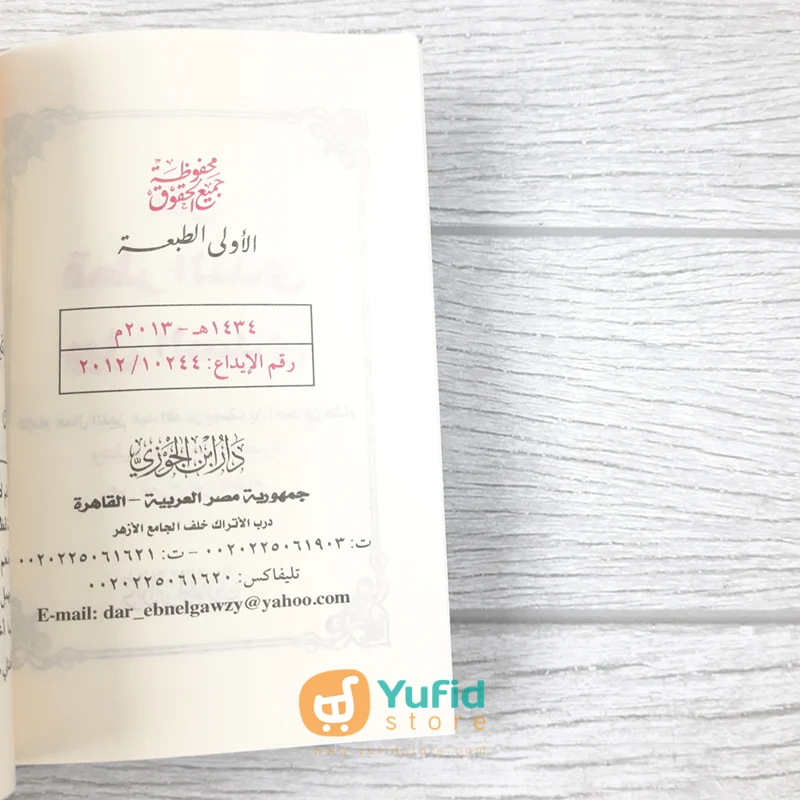 محفوظة
جميع الحقوق
الأولى الطبعة
١٤٣٤هـ - ٢٠١٣م
رقم الإيداع: ٢٠١٢/١٠٢٤٤
دار ابن الجوزي
جمهورية مصر العربية - القاهرة
درب الأتراك خلف الجامع الأزهر
ت: ٠٠٢٠٢٢٥٠٦١٩٠٣ - ت: ٠٠٢٠٢٢٥٠٦١٦٢١
تليفاكس: ٠٠٢٠٢٢٥٠٦١٦٢٠
E-mail: dar_ebnelgawzy@yahoo.com
Yufid
store